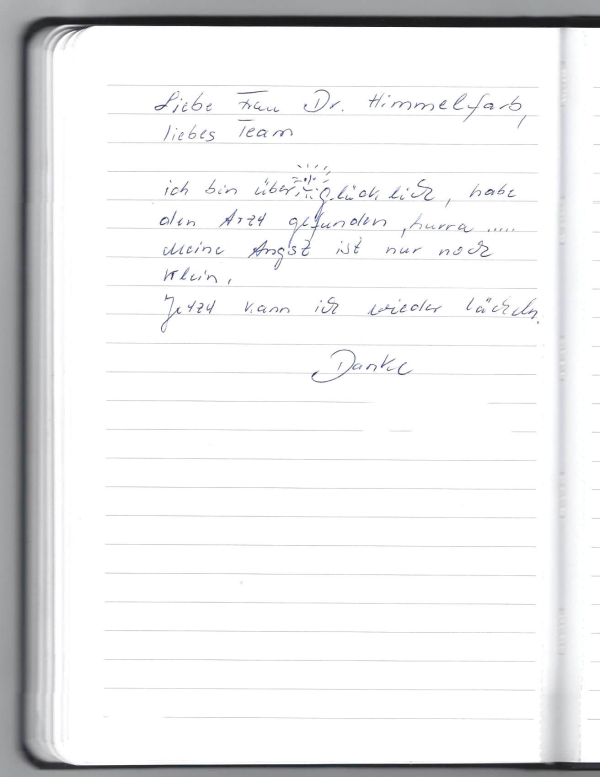 Liebe Frau Dr. Himmelfarb,
liebes Team
ich bin überglücklich, habe
den Arzt gefunden, hurra .....
Meine Angst ist nur noch
klein,
Jetzt kann ich wieder lächeln.
Danke